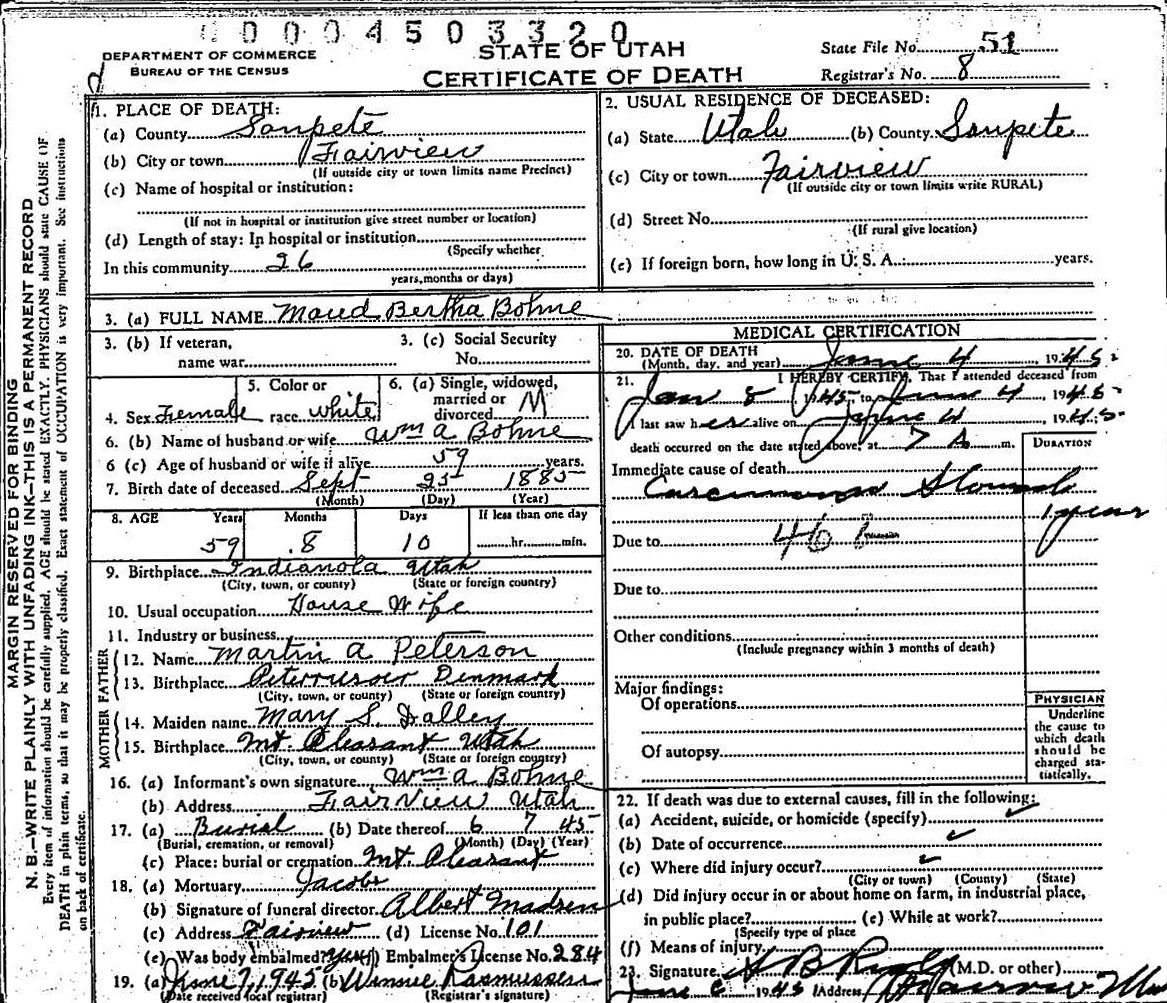 0004503320
DEPARTMENT OF COMMERCE
BUREAU OF THE CENSUS
STATE OF UTAH
CERTIFICATE OF DEATH
State File No. 51
Registrar's No. 8
MARGIN RESERVED FOR BINDING
N. B.—WRITE PLAINLY WITH UNFADING INK—THIS IS A PERMANENT RECORD
Every item of information should be carefully supplied. AGE should be stated EXACTLY. PHYSICIANS should state CAUSE OF
DEATH in plain terms, so that it may be properly classified. Exact statement of OCCUPATION is very important. See instructions
on back of certificate.
1. PLACE OF DEATH:
(a) County Sanpete
(b) City or town Fairview
(If outside city or town limits name Precinct)
(c) Name of hospital or institution:
(If not in hospital or institution give street number or location)
(d) Length of stay: In hospital or institution
(Specify whether
In this community 26
years, months or days)
2. USUAL RESIDENCE OF DECEASED:
(a) State Utah (b) County Sanpete
(c) City or town Fairview
(If outside city or town limits write RURAL)
(d) Street No.
(If rural give location)
(e) If foreign born, how long in U. S. A.: years.
3. (a) FULL NAME Maud Bertha Bohne
3. (b) If veteran,
name war
3. (c) Social Security
No.
4. Sex Female
5. Color or
race white
6. (a) Single, widowed,
married or
divorced M
6. (b) Name of husband or wife Wm A Bohne
6 (c) Age of husband or wife if alive 59 years.
7. Birth date of deceased Sept 25 1885
(Month) (Day) (Year)
8. AGE Years Months Days If less than one day
59 8 10 hr. min.
9. Birthplace Indianola Utah
(City, town, or county) (State or foreign country)
10. Usual occupation House Wife
11. Industry or business
FATHER
12. Name Martin A Peterson
13. Birthplace Denmark
(City, town, or county) (State or foreign country)
MOTHER
14. Maiden name Mary S.
15. Birthplace Mt. Pleasant Utah
(City, town, or county) (State or foreign country)
16. (a) Informant's own signature Wm A Bohne
(b) Address FairView Utah
17. (a) Burial (b) Date thereof 6 7 45
(Burial, cremation, or removal) (Month) (Day) (Year)
(c) Place: burial or cremation Mt. Pleasant
18. (a) Mortuary Jacobs
(b) Signature of funeral director Albert Madsen
(c) Address Fairview (d) License No. 101
(e) Was body embalmed? (yes) Embalmer's License No. 284
19. (a) June 7, 1945 (b) Winnie Rasmussen
(Date received local registrar) (Registrar's signature)
MEDICAL CERTIFICATION
20. DATE OF DEATH
(Month, day, and year) June 4, 1945
21. I HEREBY CERTIFY, That I attended deceased from
Jan 8 1945 to June 4, 1945
I last saw her alive on June 4, 1945
death occurred on the date stated above, at 7 A m.
DURATION
Immediate cause of death
Carcinoma Stomach
1 year
Due to 46
Due to
Other conditions
(Include pregnancy within 3 months of death)
Major findings:
Of operations
Of autopsy
PHYSICIAN
Underline
the cause to
which death
should be
charged sta-
tistically.
22. If death was due to external causes, fill in the following:
(a) Accident, suicide, or homicide (specify)
(b) Date of occurrence
(c) Where did injury occur?
(City or town) (County) (State)
(d) Did injury occur in or about home on farm, in industrial place,
in public place? (e) While at work?
(Specify type of place
(f) Means of injury
23. Signature (M.D. or other)
June 6 1945 Address Fairview